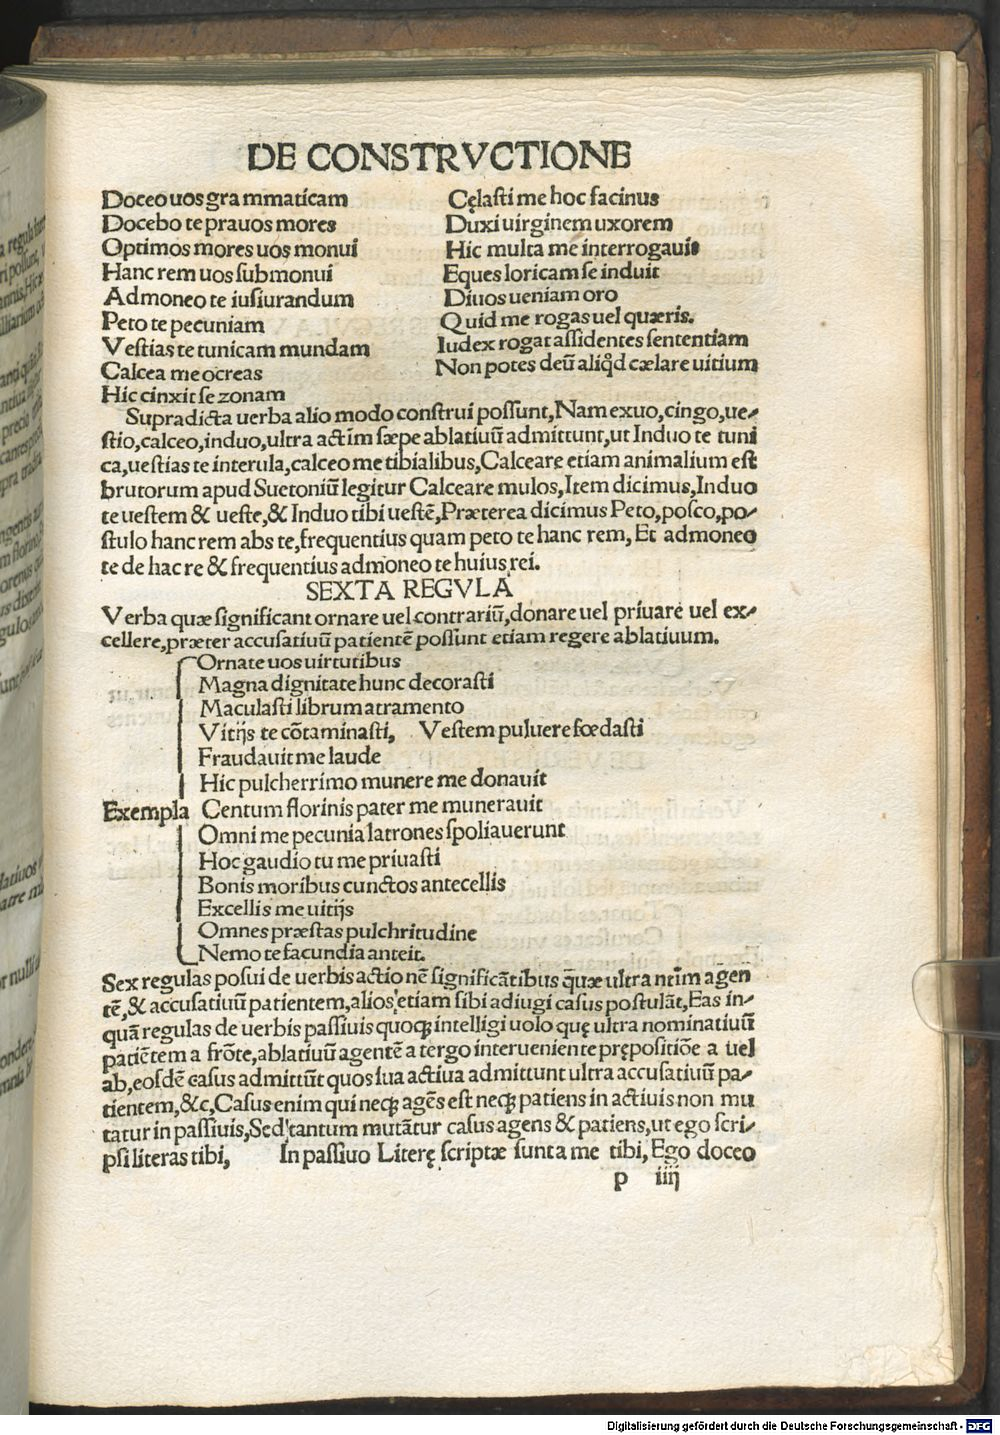 DE CONSTRVCTIONE
Doceo uos gra mmaticam
Docebo te prauos mores
Optimos mores uos monui
Hanc rem uos submonui
Admoneo te iusiurandum
Peto te pecuniam
Vestias te tunicam mundam
Calcea me ocreas
Hic cinxit se zonam
Cęlasti me hoc facinus
Duxi uirginem uxorem
Hic multa me interrogauit
Eques loricam se induit
Diuos ueniam oro
Quid me rogas uel quæris.
Iudex rogat assidentes sententiam
Non potes deū aliqd cælare uitium
Supradicta uerba alio modo construi possunt, Nam exuo, cingo, ue-
stio, calceo, induo, ultra actim sæpe ablatiuū admittunt, ut Induo te tuni
ca, uestias te interula, calceo me tibialibus, Calceare etiam animalium est
brutorum apud Suetoniū legitur Calceare mulos, Item dicimus, Induo
te uestem & ueste, & Induo tibi uestē, Præterea dicimus Peto, posco, po-
stulo hanc rem abs te, frequentius quam peto te hanc rem, Et admoneo
te de hac re & frequentius admoneo te huius rei.
SEXTA REGVLA
Verba quæ significant ornare uel contrariū, donare uel priuare uel ex-
cellere, præter accusatiuū patientē possunt etiam regere ablatiuum.
Ornate uos uirtutibus
Magna dignitate hunc decorasti
Maculasti librum atramento
Vitijs te cōtaminasti, Vestem puluere fœdasti
Fraudauit me laude
Hic pulcherrimo munere me donauit
Exempla Centum florinis pater me munerauit
Omni me pecunia latrones spoliauerunt
Hoc gaudio tu me priuasti
Bonis moribus cunctos antecellis
Excellis me uitijs
Omnes præstas pulchritudine
Nemo te facundia anteit.
Sex regulas posui de uerbis actio nē significātibus q̄uæ ultra ntim agen
tē, & accusatiuū patientem, alios etiam sibi adiugi casus postulāt, Eas in-
quā regulas de uerbis passiuis quoqꝫ intelligi uolo quę ultra nominatiuū
patiētem a frōte, ablatiuū agentē a tergo interueniente prępositiōe a uel
ab, eosdē casus admittūt quos sua actiua admittunt ultra accusatiuū pa-
tientem, &c, Casus enim qui neqꝫ agēs est neqꝫ patiens in actiuis non mu
tatur in passiuis, Sed tantum mutātur casus agens & patiens, ut ego scri-
psi literas tibi, In passiuo Literę scriptæ sunt a me tibi, Ego doceo
p iiij
Digitalisierung gefördert durch die Deutsche Forschungsgemeinschaft - DFG